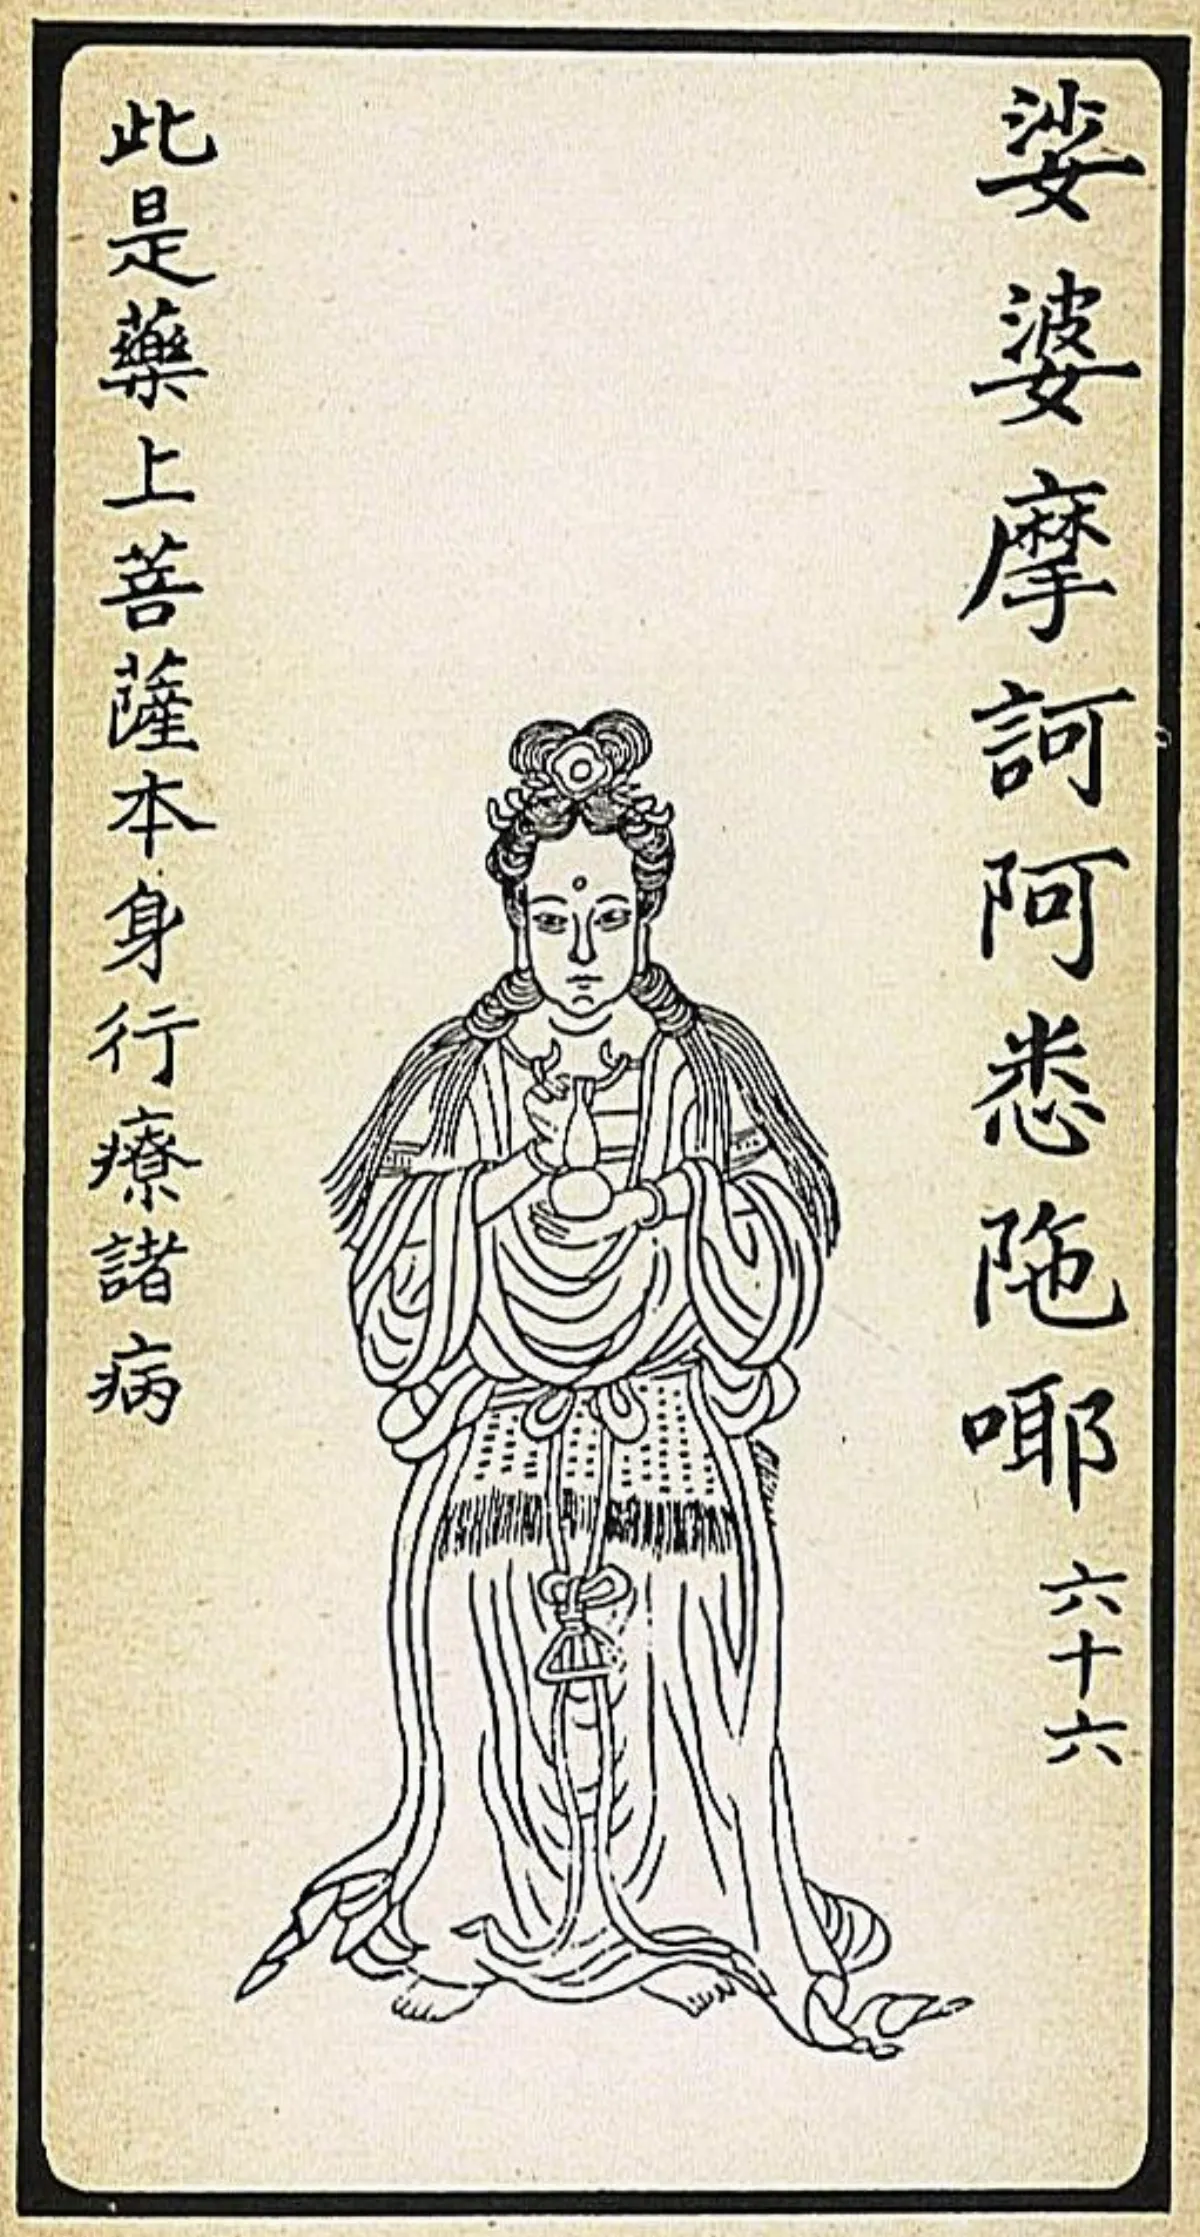 娑婆摩訶阿悉陁㖿 六十六
此是藥上菩薩本身行療諸病